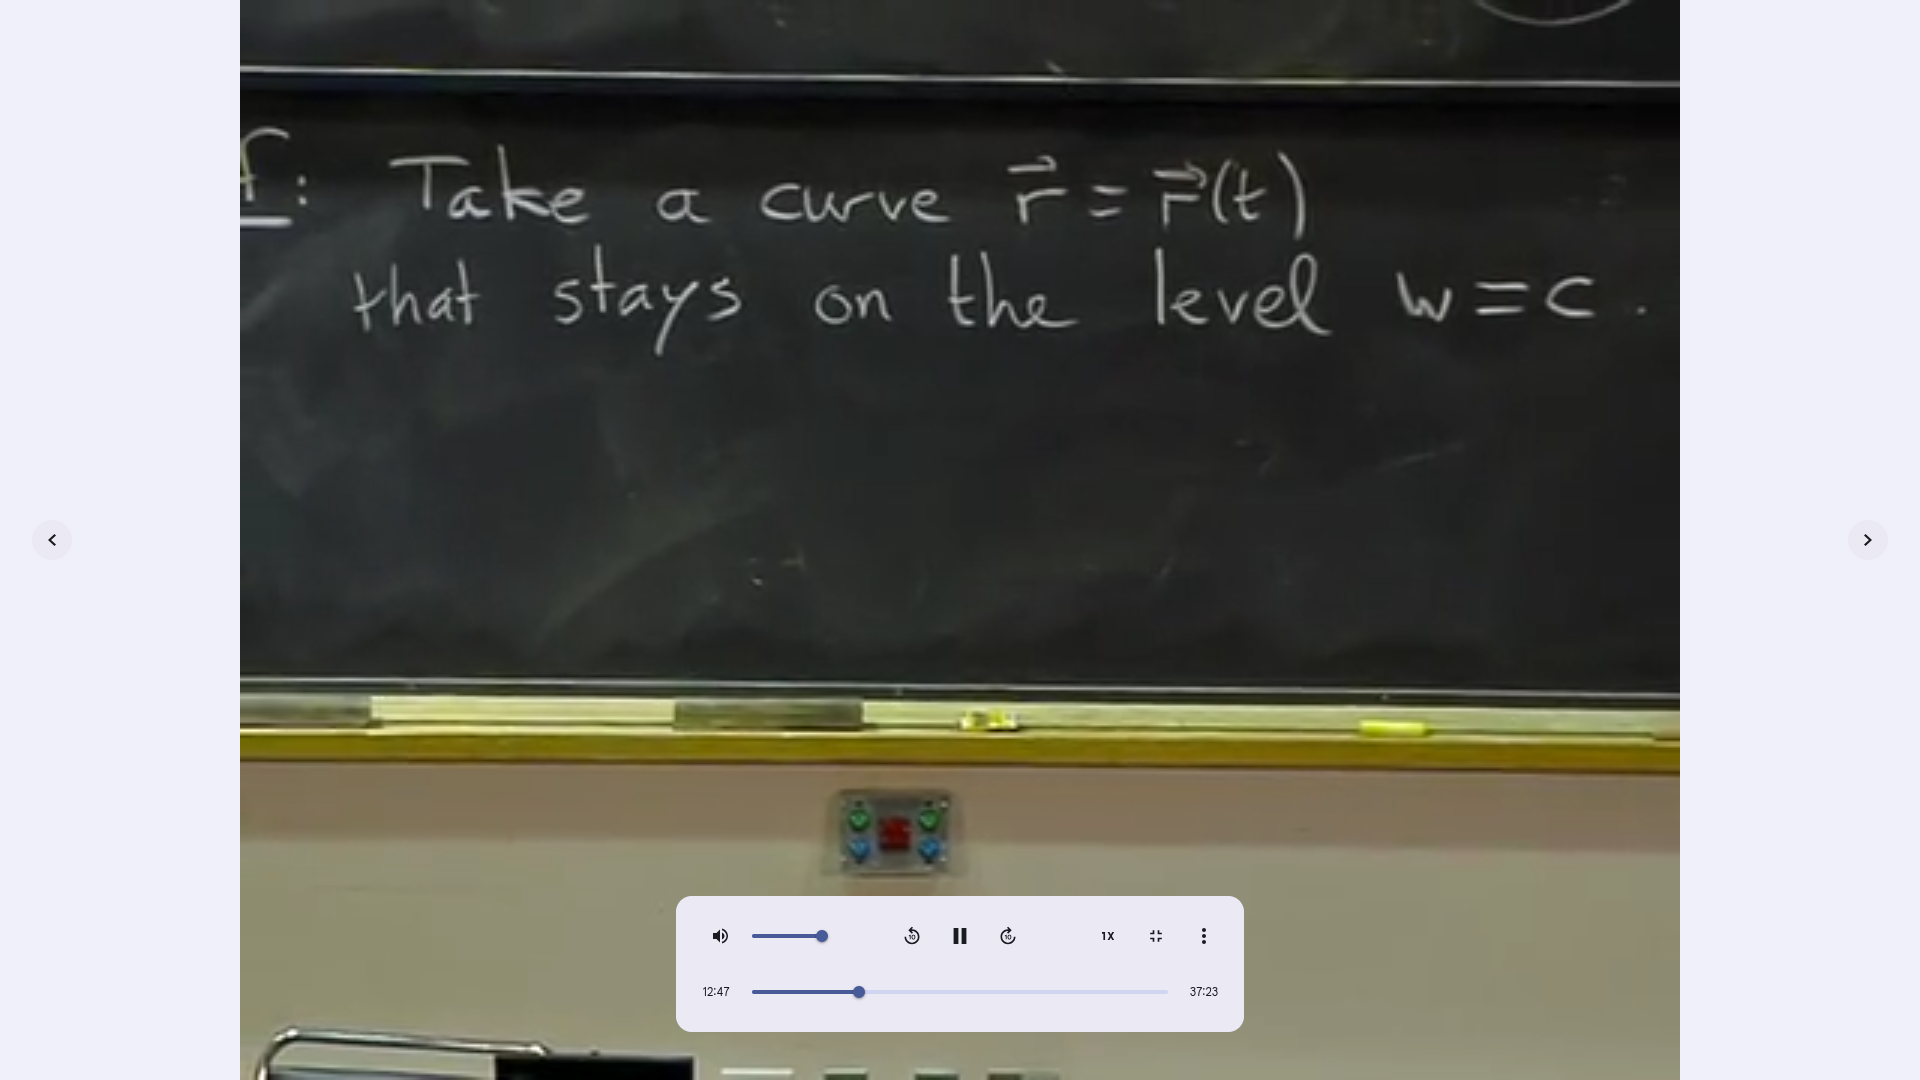 f: Take a curve r⃗ = r⃗(t)
that stays on the level w = c.
10
10
1X
12:47
37:23